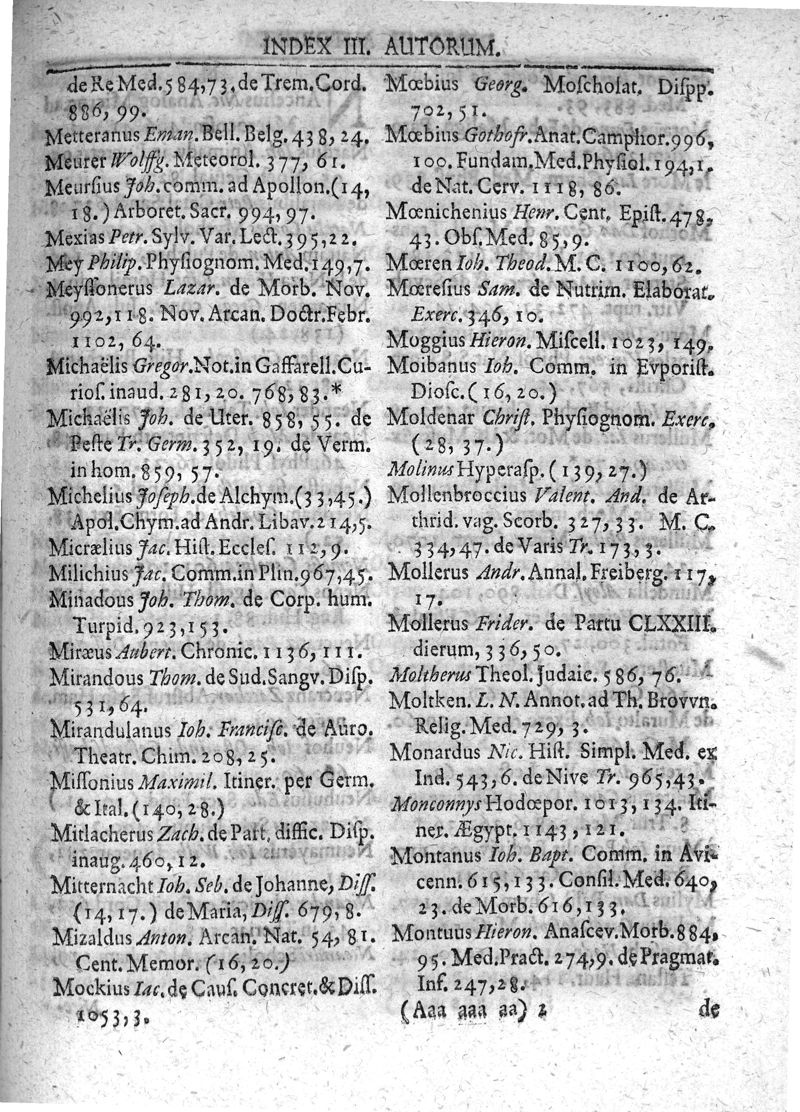 INDEX III. AUTORUM.
de Re Med. 584,73. de Trem. Cord.
886, 99.
Metteranus Eman. Bell. Belg. 438, 24.
Meurer Wolffg. Meteorol. 377, 61.
Meurſius Joh. comm. ad Apollon. (14,
18.) Arboret. Sacr. 994, 97.
Mexias Petr. Sylv. Var. Lect. 395,22.
Mey Philip. Phyſiognom. Med. 149,7.
Meyſſonerus Lazar. de Morb. Nov.
992,118. Nov. Arcan. Doctr. Febr.
1102, 64.
Michaëlis Gregor. Not. in Gaffarell. Cu-
rioſ. inaud. 281,20. 768,83.*
Michaëlis Joh. de Uter. 858, 55. de
Peſte Tr. Germ. 352, 19. de Verm.
in hom. 859, 57.
Michelius Joſeph. de Alchym. (33,45.)
Apol. Chym. ad Andr. Libav. 214,5.
Micrælius Jac. Hiſt. Eccleſ. 112,9.
Milichius Jac. Comm. in Plin. 967,45.
Minadous Joh. Thom. de Corp. hum.
Turpid. 923,153.
Miræus Aubert. Chronic. 1136, 111.
Mirandous Thom. de Sud. Sangv. Diſp.
531,64.
Mirandulanus Ioh. Franciſc. de Auro.
Theatr. Chim. 208,25.
Miſſonius Maximil. Itiner. per Germ.
& Ital. (140, 28.)
Mitlacherus Zach. de Part. diffic. Diſp.
inaug. 460,12.
Mitternacht Ioh. Seb. de Johanne, Diſſ.
(14,17.) de Maria, Diſſ. 679, 8.
Mizaldus Anton. Arcan. Nat. 54, 81.
Cent. Memor. (16,20.)
Mockius Iac. de Cauſ. Concret. & Diſſ.
1053,3.
Mœbius Georg. Moſcholat. Diſpp.
702,51.
Mœbius Gothofr. Anat. Camphor. 996,
100. Fundam. Med. Phyſiol. 194,1.
de Nat. Cerv. 1118, 86.
Mœnichenius Henr. Cent. Epiſt. 478,
43. Obſ. Med. 85,9.
Mœren Ioh. Theod. M. C. 1100,62.
Mœreſius Sam. de Nutrim. Elaborat.
Exerc. 346, 10.
Moggius Hieron. Miſcell. 1023, 149.
Moibanus Ioh. Comm. in Evporiſt.
Dioſc. (16,20.)
Moldenar Chriſt. Phyſiognom. Exerc.
(28, 37.)
Molinus Hyperaſp. (139,27.)
Mollenbroccius Valent. And. de Ar-
thrid. vag. Scorb. 327,33. M. C.
334,47. de Varis Tr. 173,3.
Mollerus Andr. Annal. Freiberg. 117,
17.
Mollerus Frider. de Partu CLXXIII.
dierum, 336, 50.
Moltherus Theol. Judaic. 586, 76.
Moltken. L. N. Annot. ad Th. Brovvn.
Relig. Med. 729, 3.
Monardus Nic. Hiſt. Simpl. Med. ex
Ind. 543,6. de Nive Tr. 965,43.
Monconnys Hodœpor. 1013, 134. Iti-
ner. Ægypt. 1143, 121.
Montanus Ioh. Bapt. Comm. in Avi-
cenn. 615,133. Conſil. Med. 640,
23. de Morb. 616,133.
Montuus Hieron. Anaſcev. Morb. 884,
95. Med. Pract. 274,9. de Pragmat.
Inf. 247,28.
(Aaa aaa aa) 2 de